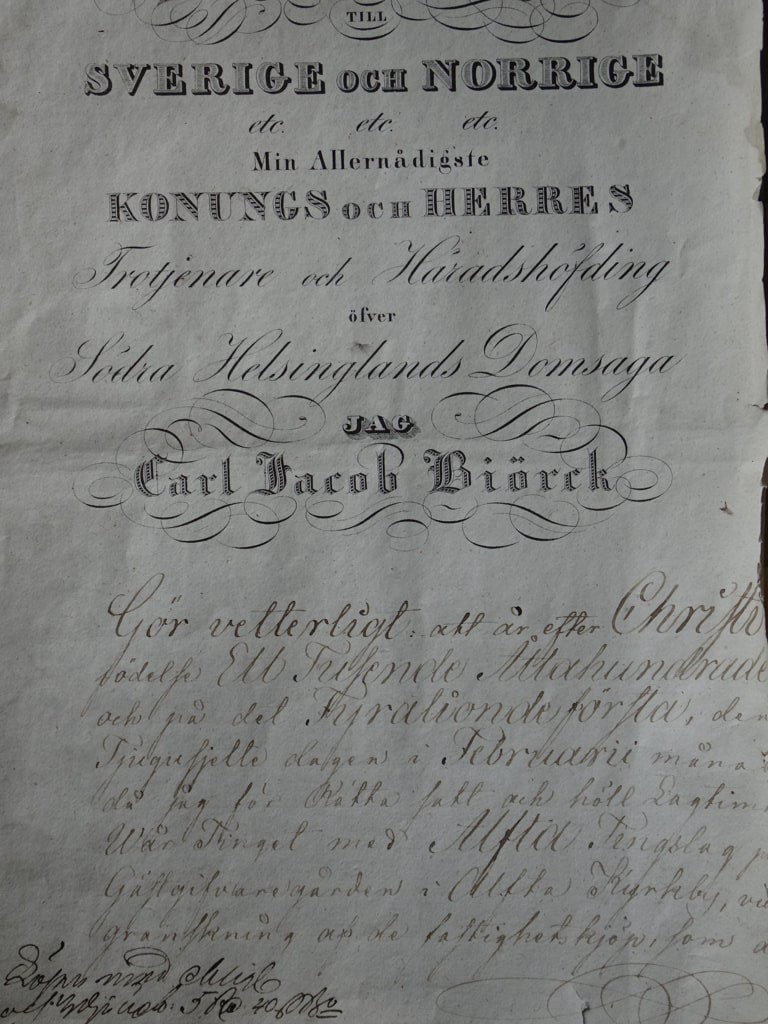 TILL
SVERIGE OCH NORRIGE
etc. etc. etc.
Min Allernådigste
KONUNGS OCH HERRES
Trotjenare och Häradshöfding
öfver
Södra Helsinglands Domsaga
JAG
Carl Jacob Biörck
Gör vetterligt: att år efter Christi
födelse Ett Tusende Åttahundrade
och på det Fyrationdeförsta, den
Tjugusjette dagen i Februarii måna
då jag för Rätta satt och höll Lagtim
Wår Tinget med Alfta Tingslag
Gästgifvaregården i Alfta Kyrkby, vid
granskning af de fastighetsköp, som
Lösen med